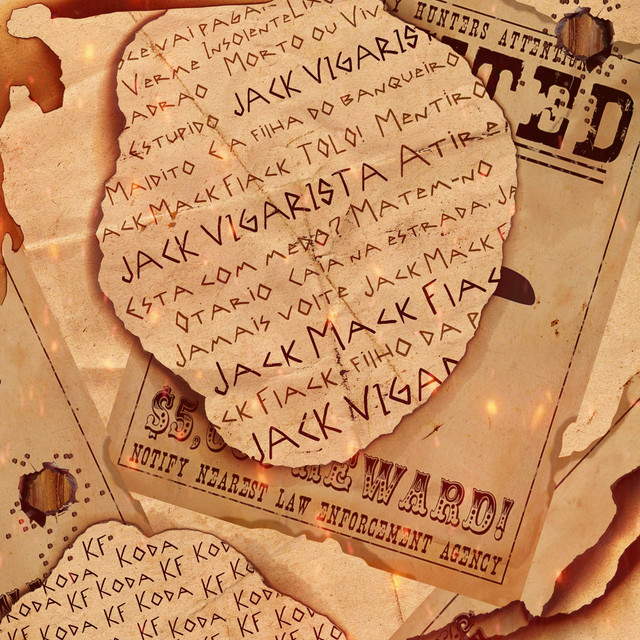 HUNTERS ATTENTION
TED
VAI PAGAR
VERME INSOLENTE
MORTO OU VIV
JACK VIGARIS
ESTUPIDO
A FILHA DO BANQUEIRO
MALDITO
ACK MACK FIACK TOLO! MENTIRO
JACK VIGARISTA ATIRE
ESTA COM MEDO? MATEM-NO
OTARIO CAIA NA ESTRADA. JA
JAMAIS VOLTE JACK MACK F
JACK MACK FIAC
CK FIACK FILHO DA P
JACK VIGAR
$5,
REWARD!
NOTIFY NEAREST LAW ENFORCEMENT AGENCY
KF KODA KOD
KODA KF KODA KF KO
ODA KF KODA KF KODA
KF KODA KF KODA KF KO